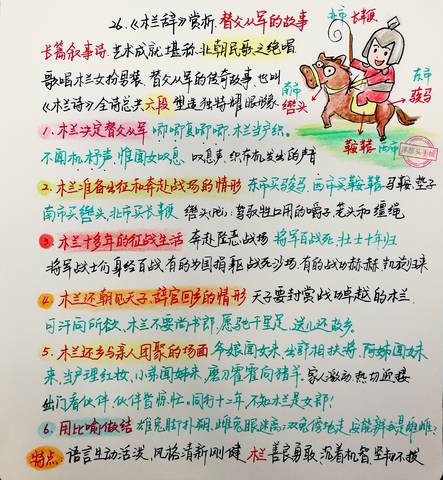 26.《木兰辞》赏析.替父从军的故事
长篇叙事诗.艺术成就堪称北朝民歌之绝唱
歌唱木兰女扮男装.替父从军的传奇故事.也叫
《木兰诗》全诗总共六段.塑造独特
1.木兰决定替父从军 唧唧复唧唧.木兰当户织.
不闻机杼声.惟闻女叹息. 叹息声.织布机发生的声音
2.木兰准备出征和奔赴战场的情形 东市买骏马.西市买鞍鞯 马鞍.垫子
南市买辔头.北市买长鞭 辔头(pèi):驾驭牲口用的嚼子.笼头和缰绳
3.木兰十多年的征战生活 奔赴 战场 将军百战死.壮士十年归
将军战士们身经百战.有的为国捐躯战死沙场.有的战功赫赫.凯旋归来
4.木兰还朝见天子.辞官回乡的情形 天子要封赏战功卓越的木兰.
可汗问所欲.木兰不要尚书郎.愿驰千里足.送儿还故乡.
5.木兰还乡与亲人团聚的场面 爷娘闻女来.出郭相扶将.阿姊闻妹
来.当户理红妆.小弟闻姊来.磨刀霍霍向猪羊. 家人激动.热切迎接
出门看伙伴.伙伴皆惊忙.同行十二年.不知木兰是女郎!
6.用比喻做结 雄兔脚扑朔.雌兔眼迷离;双兔傍地走.安能辨我是雄雌?
特点: 语言生动活泼.风格清新刚健.木兰善良勇敢.沉着机智.坚韧不拔
北市 长鞭
东市
骏马
南市
辔头
鞍鞯 西市